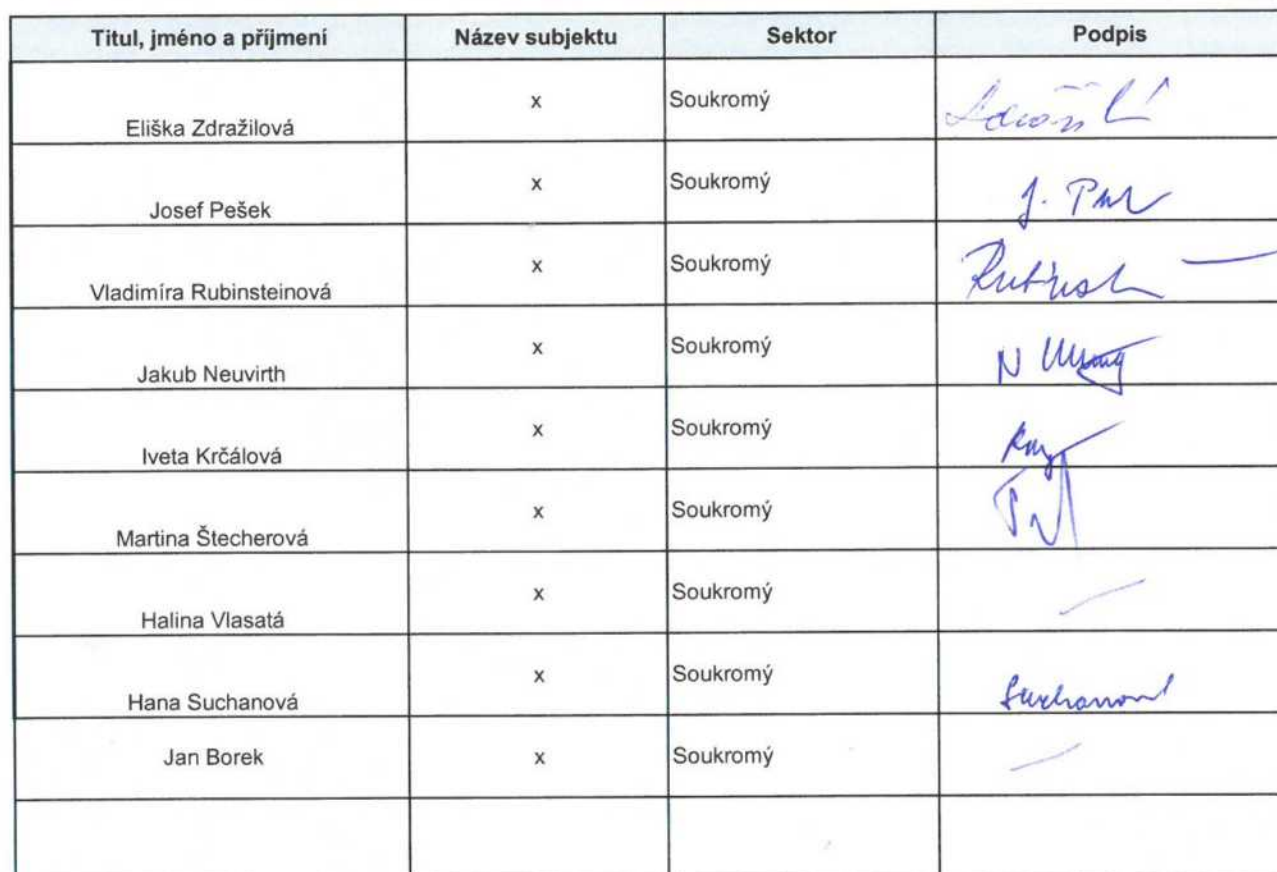 Titul, jméno a příjmení Název subjektu Sektor Podpis
Eliška Zdražilová x Soukromý
Josef Pešek x Soukromý J.
Vladimíra Rubinsteinová x Soukromý
Jakub Neuvirth x Soukromý N
Iveta Krčálová x Soukromý
Martina Štecherová x Soukromý
Halina Vlasatá x Soukromý
Hana Suchanová x Soukromý Suchanová
Jan Borek x Soukromý